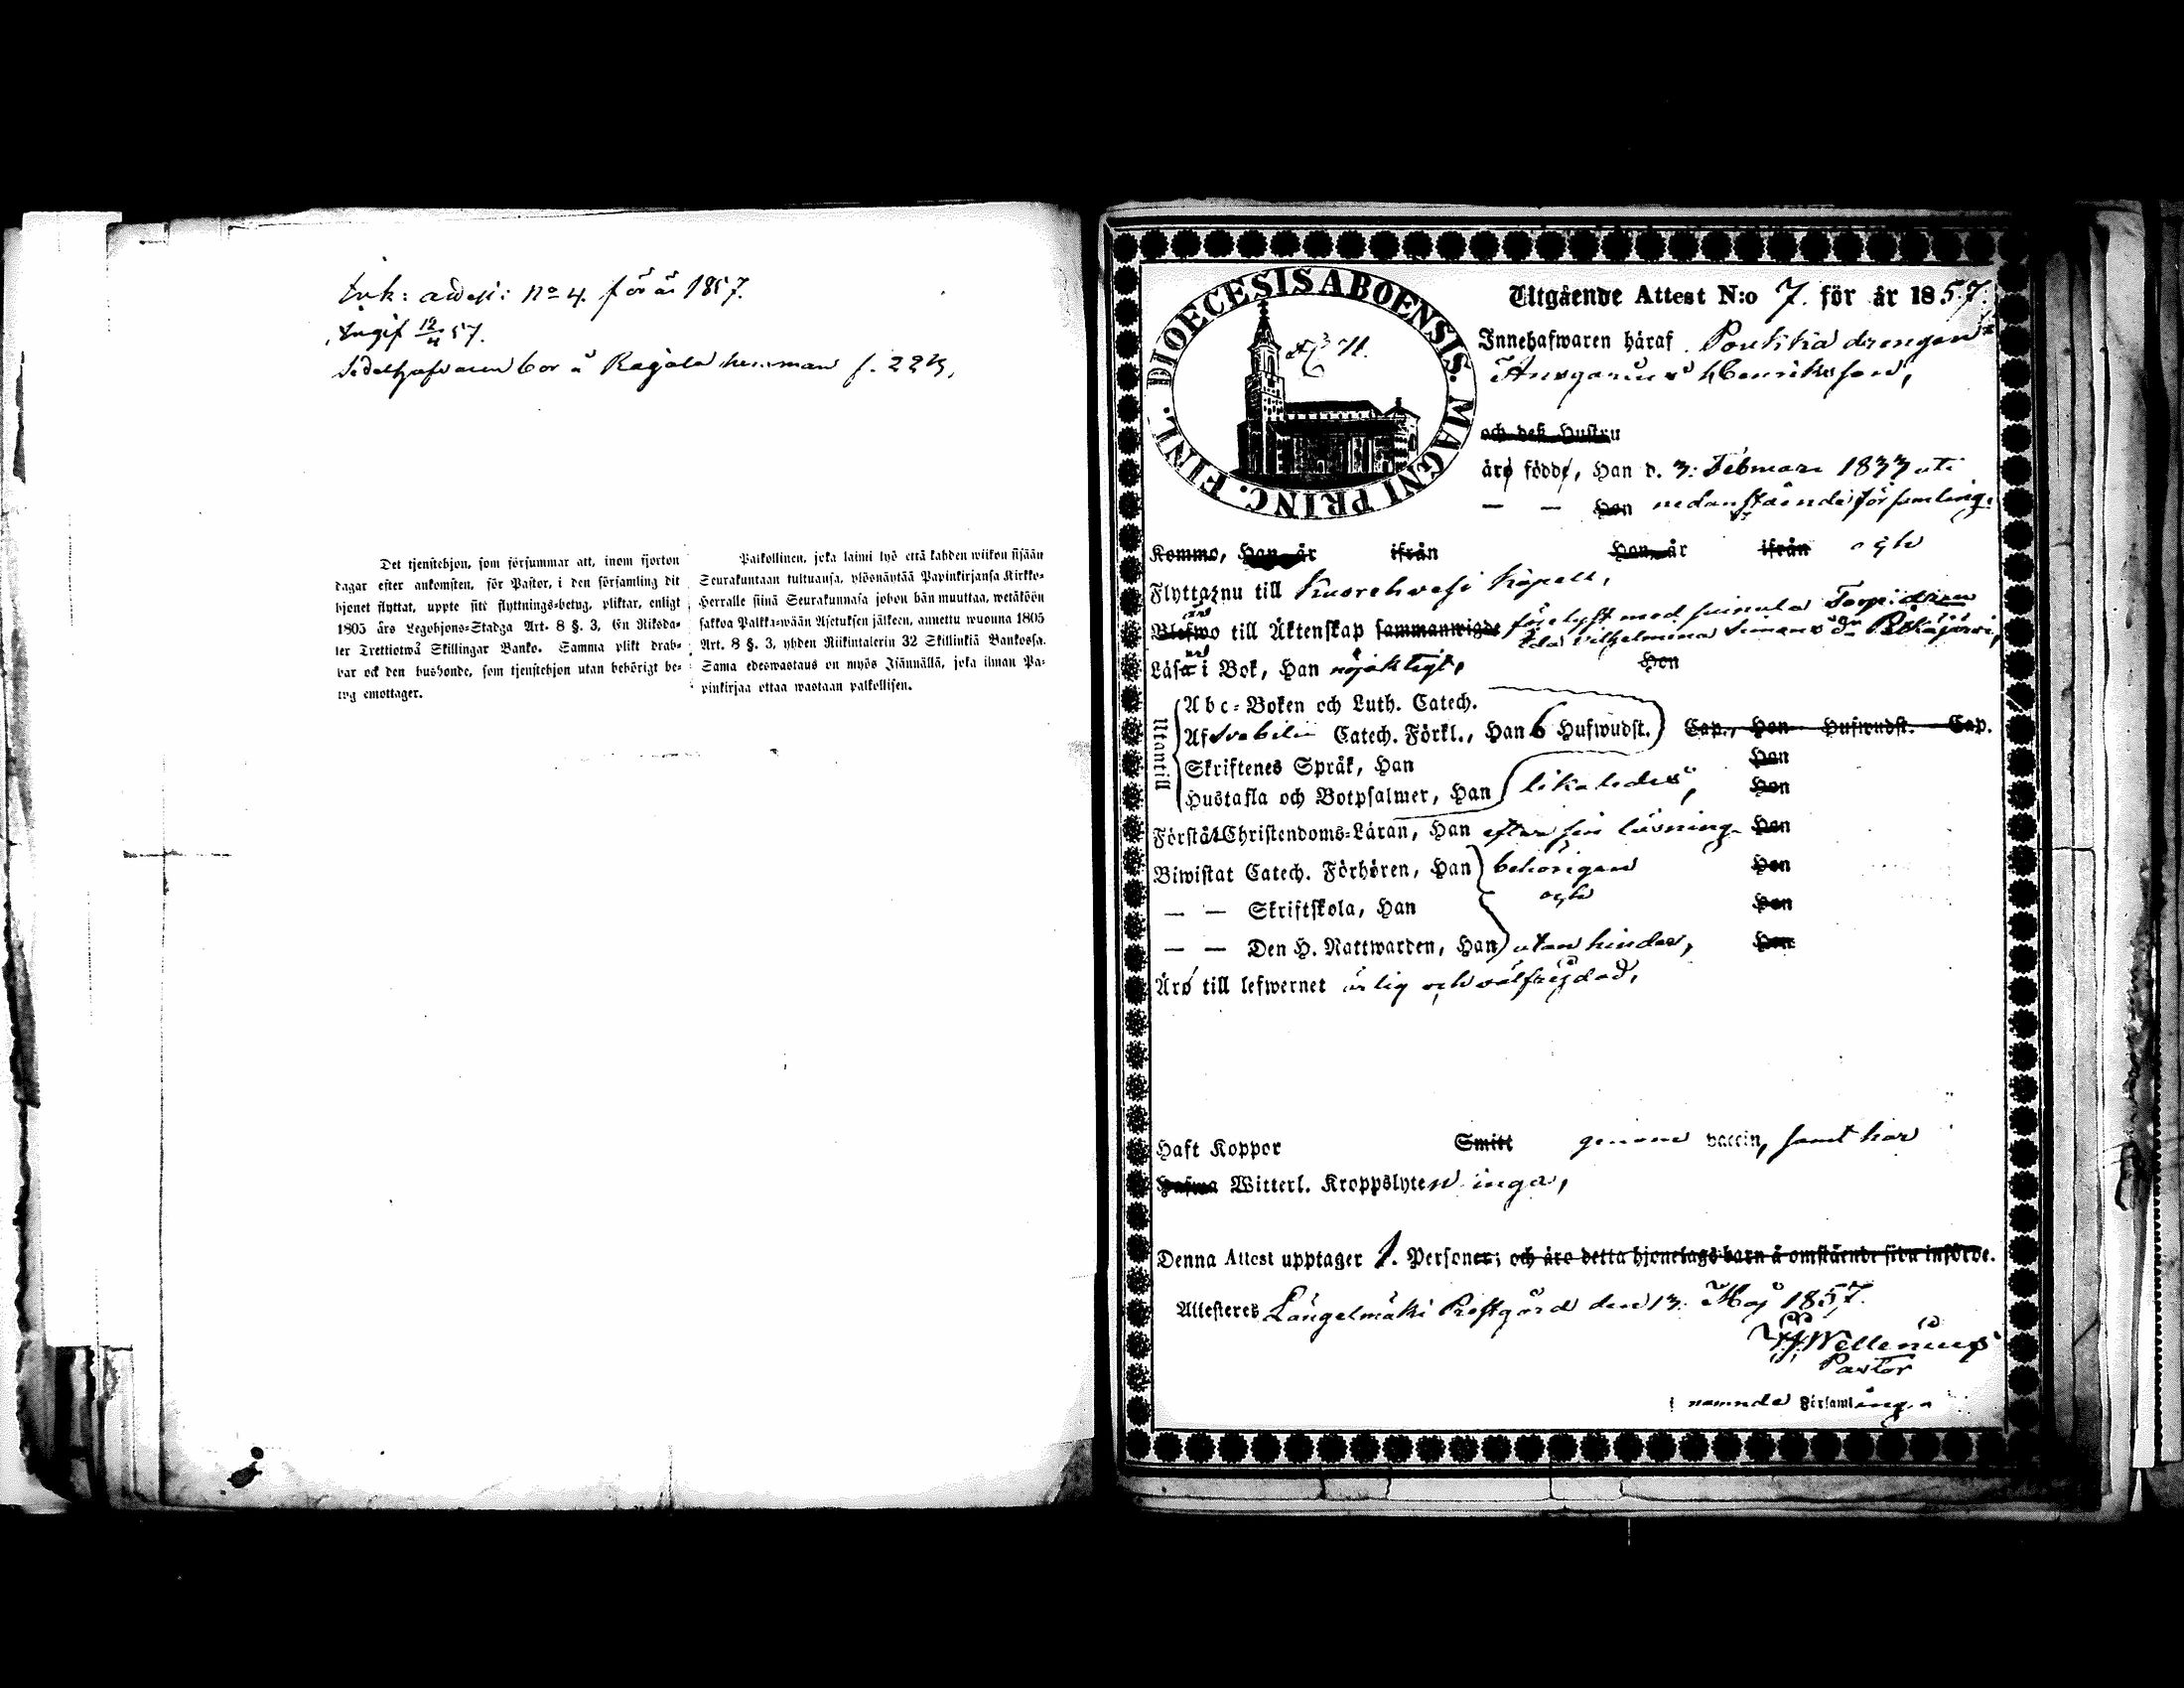 Ink: attest: No 4. för år 1857.
Ingif 12/4 57.
bor å Rajala hemman f. 224,
Det tjenstehjon, som försummar att, inom fjorton
dagar efter ankomsten, för Pastor, i den församling dit
hjonet flyttat, uppte sitt flyttnings-betyg, pliktar, enligt
1805 års Legohjons-Stadga Art. 8 §. 3, En Riksda-
ler Trettiotwå Skillingar Banko. Samma plikt drab-
bar ock den husbonde, som tjenstehjon utan behörigt be-
tyg emottager.
Palkollinen, joka laimi lyö että kahden wiikon sisään
Seurakuntaan tultuansa, ylösnäytää Papinkirjansa Kirkko-
Herralle siinä Seurakunnasa johon hän muuttaa, wetäköön
sakkoa Palkka-wään Asetuksen jälkeen, annettu wuonna 1805
Art. 8 §. 3, yhden Riikintalerin 32 Skillinkiä Bankossa.
Sama edeswastaus on myös Isännällä, joka ilman Pa-
pinkirjaa ottaa wastaan palkollisen.
DIOECESIS ABOENSIS. MAGNI PRINC. FINL.
Utgående Attest N:o 7. för år 1857.
Innehafwaren häraf Poukka drengen
Ansgarius Henriksson,
och deß Hustru
äro född, Han d. 3: Februari 1833 uti
— — Hon nedanstående församling.
Kommo, Han år ifrån Hon, år ifrån och
Flyttar nu till Kuorehvesi Kapell,
Blefwo till Äktenskap sammanwigde förelyst med pinula Torp: dren
Ida Vilhelmina Simonsdr
Läsa i Bok, Han nöjaktigt, Hon
Utantill
Abc-Boken och Luth. Catech.
Af Svebelii Catech. Förkl., Han 6 Hufwudst. Cap., Hon Hufwudst. Cap.
Skriftenes Språk, Han Hon
Hustafla och Botpsalmer, Han likaledes, Hon
Förstå Christendoms-Läran, Han efter sin läsning. Hon
Biwistat Catech. Förhören, Han behörigen Hon
— — Skriftskola, Han och Hon
— — Den H. Nattwarden, Han utan hinder, Hon
Äro till lefwernet ärlig och välfrejdad,
Haft Koppor Smitt genom vaccin, samt har
Hafwa Witterl. Kroppslyten inga,
Denna Attest upptager 1. Personer; och äro detta hjonelags barn å omstående sida införde.
Attesteras Längelmäki Prestgård den 13. Maj 1857.
Wellenius
Pastor
i nämnde Församling.